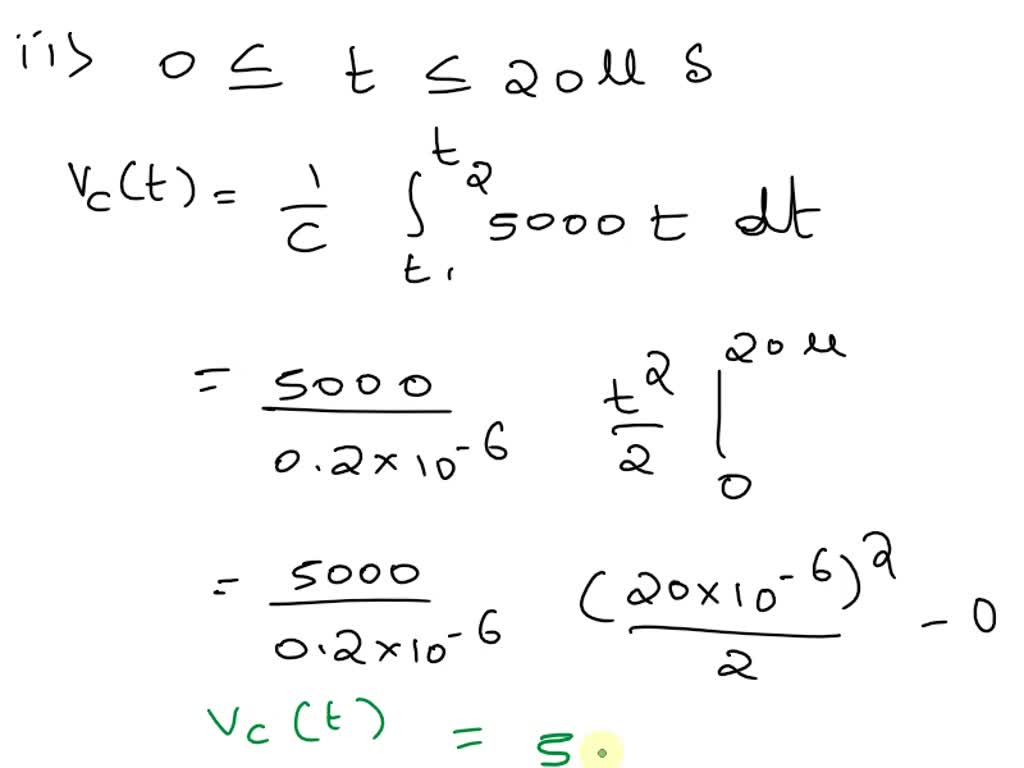 ii) 0 ≤ t ≤ 20 μ s
Vc(t) = 1/C ∫ t₁ t₂ 5000 t dt
= 5000/0.2×10⁻⁶ t²/2 | 0 20 μ
= 5000/0.2×10⁻⁶ (20×10⁻⁶)²/2 - 0
Vc(t) = 5.